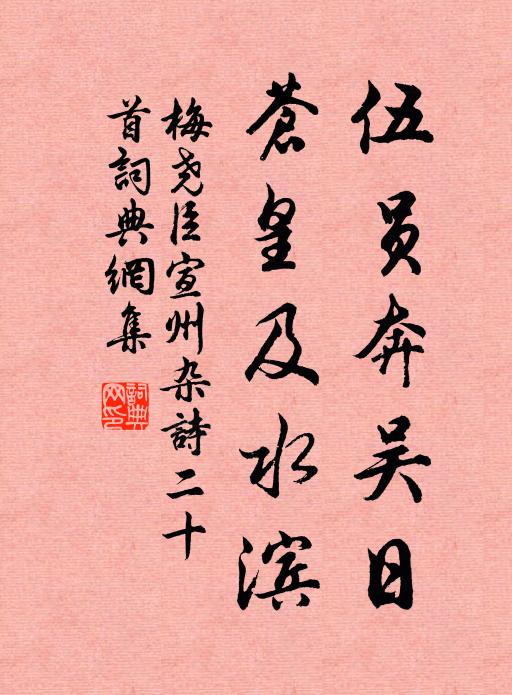 伍员奔吴日
蒼皇及水滨
梅尧臣宣州杂詩二十
首詞典網集
詞典网印